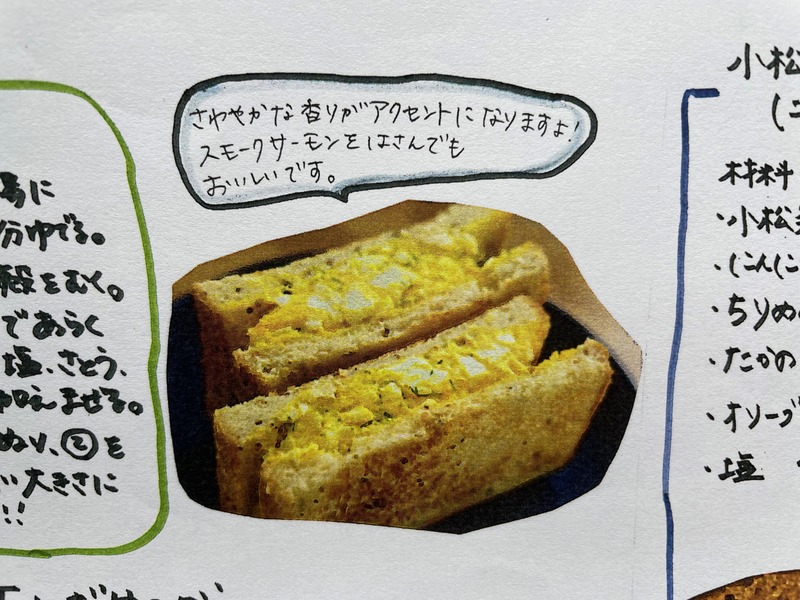 さわやかな香りがアクセントになりますよ!
スモークサーモンをはさんでも
おいしいです。
に
分ゆでる。
殻をむく。
であらく
塩、さとう、
加えまぜる。
ぬり、②を
い大きさに
!!
小松
(ニ
材料
・小松
・にんにこ
・ちりめ
・たかの
・オリーブ
・塩